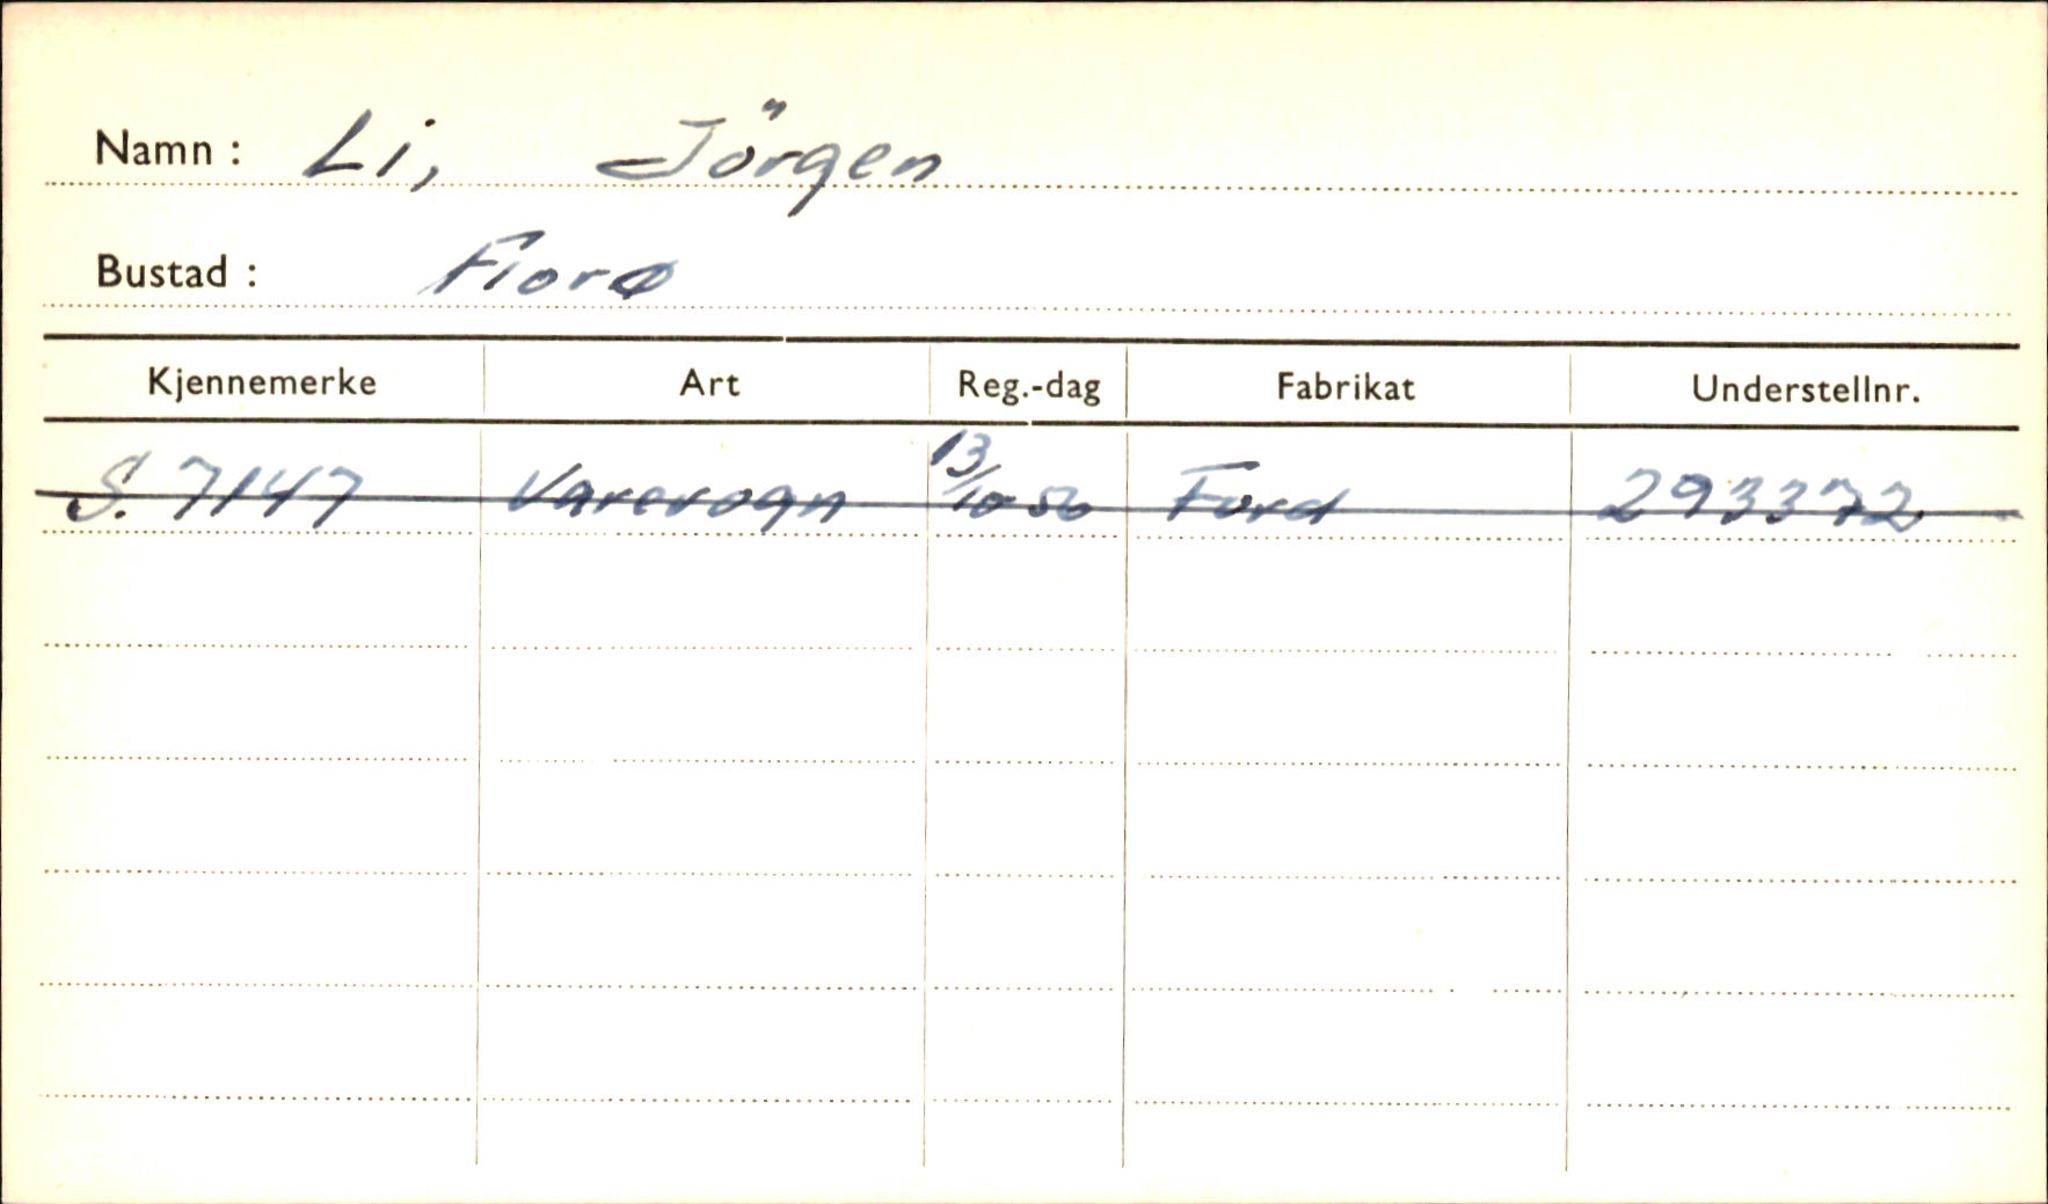 Namn : Li, Jörgen
Bustad : Florø
Kjennemerke Art Reg.-dag Fabrikat Understellnr.
S. 7147 Varevogn 13/10 50 Ford 293372